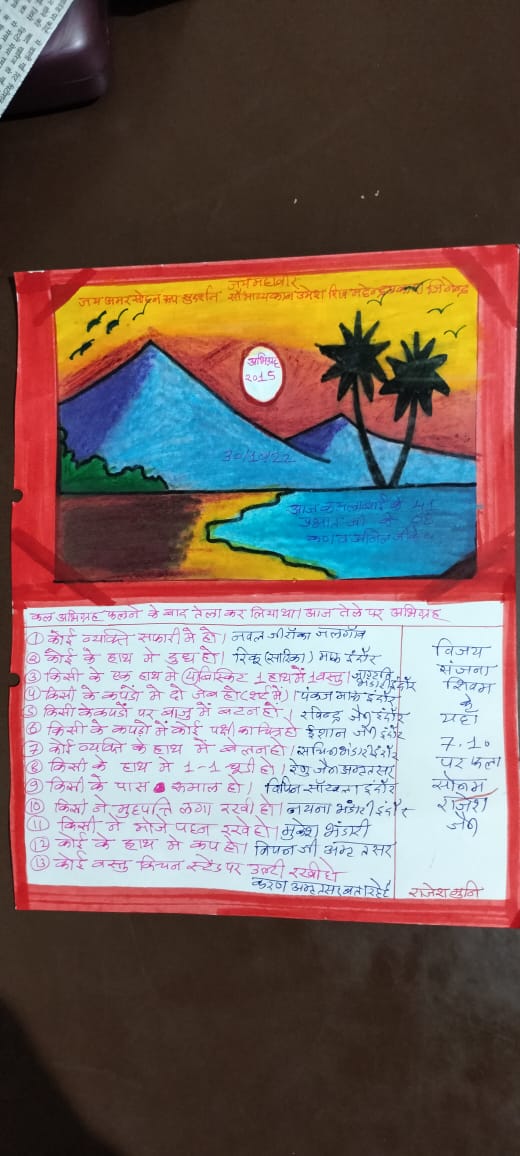 जय महावीर
जय अमर
अभिग्रह
२०१5
30/10/22
आज कमलाबाई के 41
कल अभिग्रह फलने के बाद तेला कर लिया था। आज तेले पर अभिग्रह
① कोई व्यक्ति सफारी मे हो। नवल जी जलगाँव
② कोई के हाथ मे दुध हो। रिंकू (सारिका) मारू इंदौर
③ किसी के एक हाथ मे (4) बिस्किट 1 हाथ में 1 वस्तु। भंडारी इंदौर
④ किसी के कपडो मे दो जेब हो (शर्ट में) पंकज मारू इंदौर
⑤ किसी के कपडो पर बाजु में बटन हो। रविन्द्र जैन इंदौर
⑥ किसी के कपडो में कोई पक्षी का चित्र हो ईशान जैन इंदौर
⑦ कोई व्यक्ति के हाथ मे बेलन हो। सचिन भंडारी इंदौर
⑧ किसी के हाथ में 1-1 चूडी हो। रेणु जैन अमृतसर
⑨ किसी के पास रूमाल हो। विपिन इंदौर
⑩ किसी ने मुहपत्ति लगा रखी हो। नयना भंडारी इंदौर
⑪ किसी ने मोजे पहन रखे हो। मुकेश भंडारी
⑫ कोई के हाथ मे कप हो। विपन जी अमृतसर
⑬ कोई वस्तु किचन स्टेंड पर उल्टी रखी हो
करण अमृतसर
विजय
संजना
शिवम
के
यहां
7.10
पर फला
सोनम
राजेश
जैन
राजेश मुनि